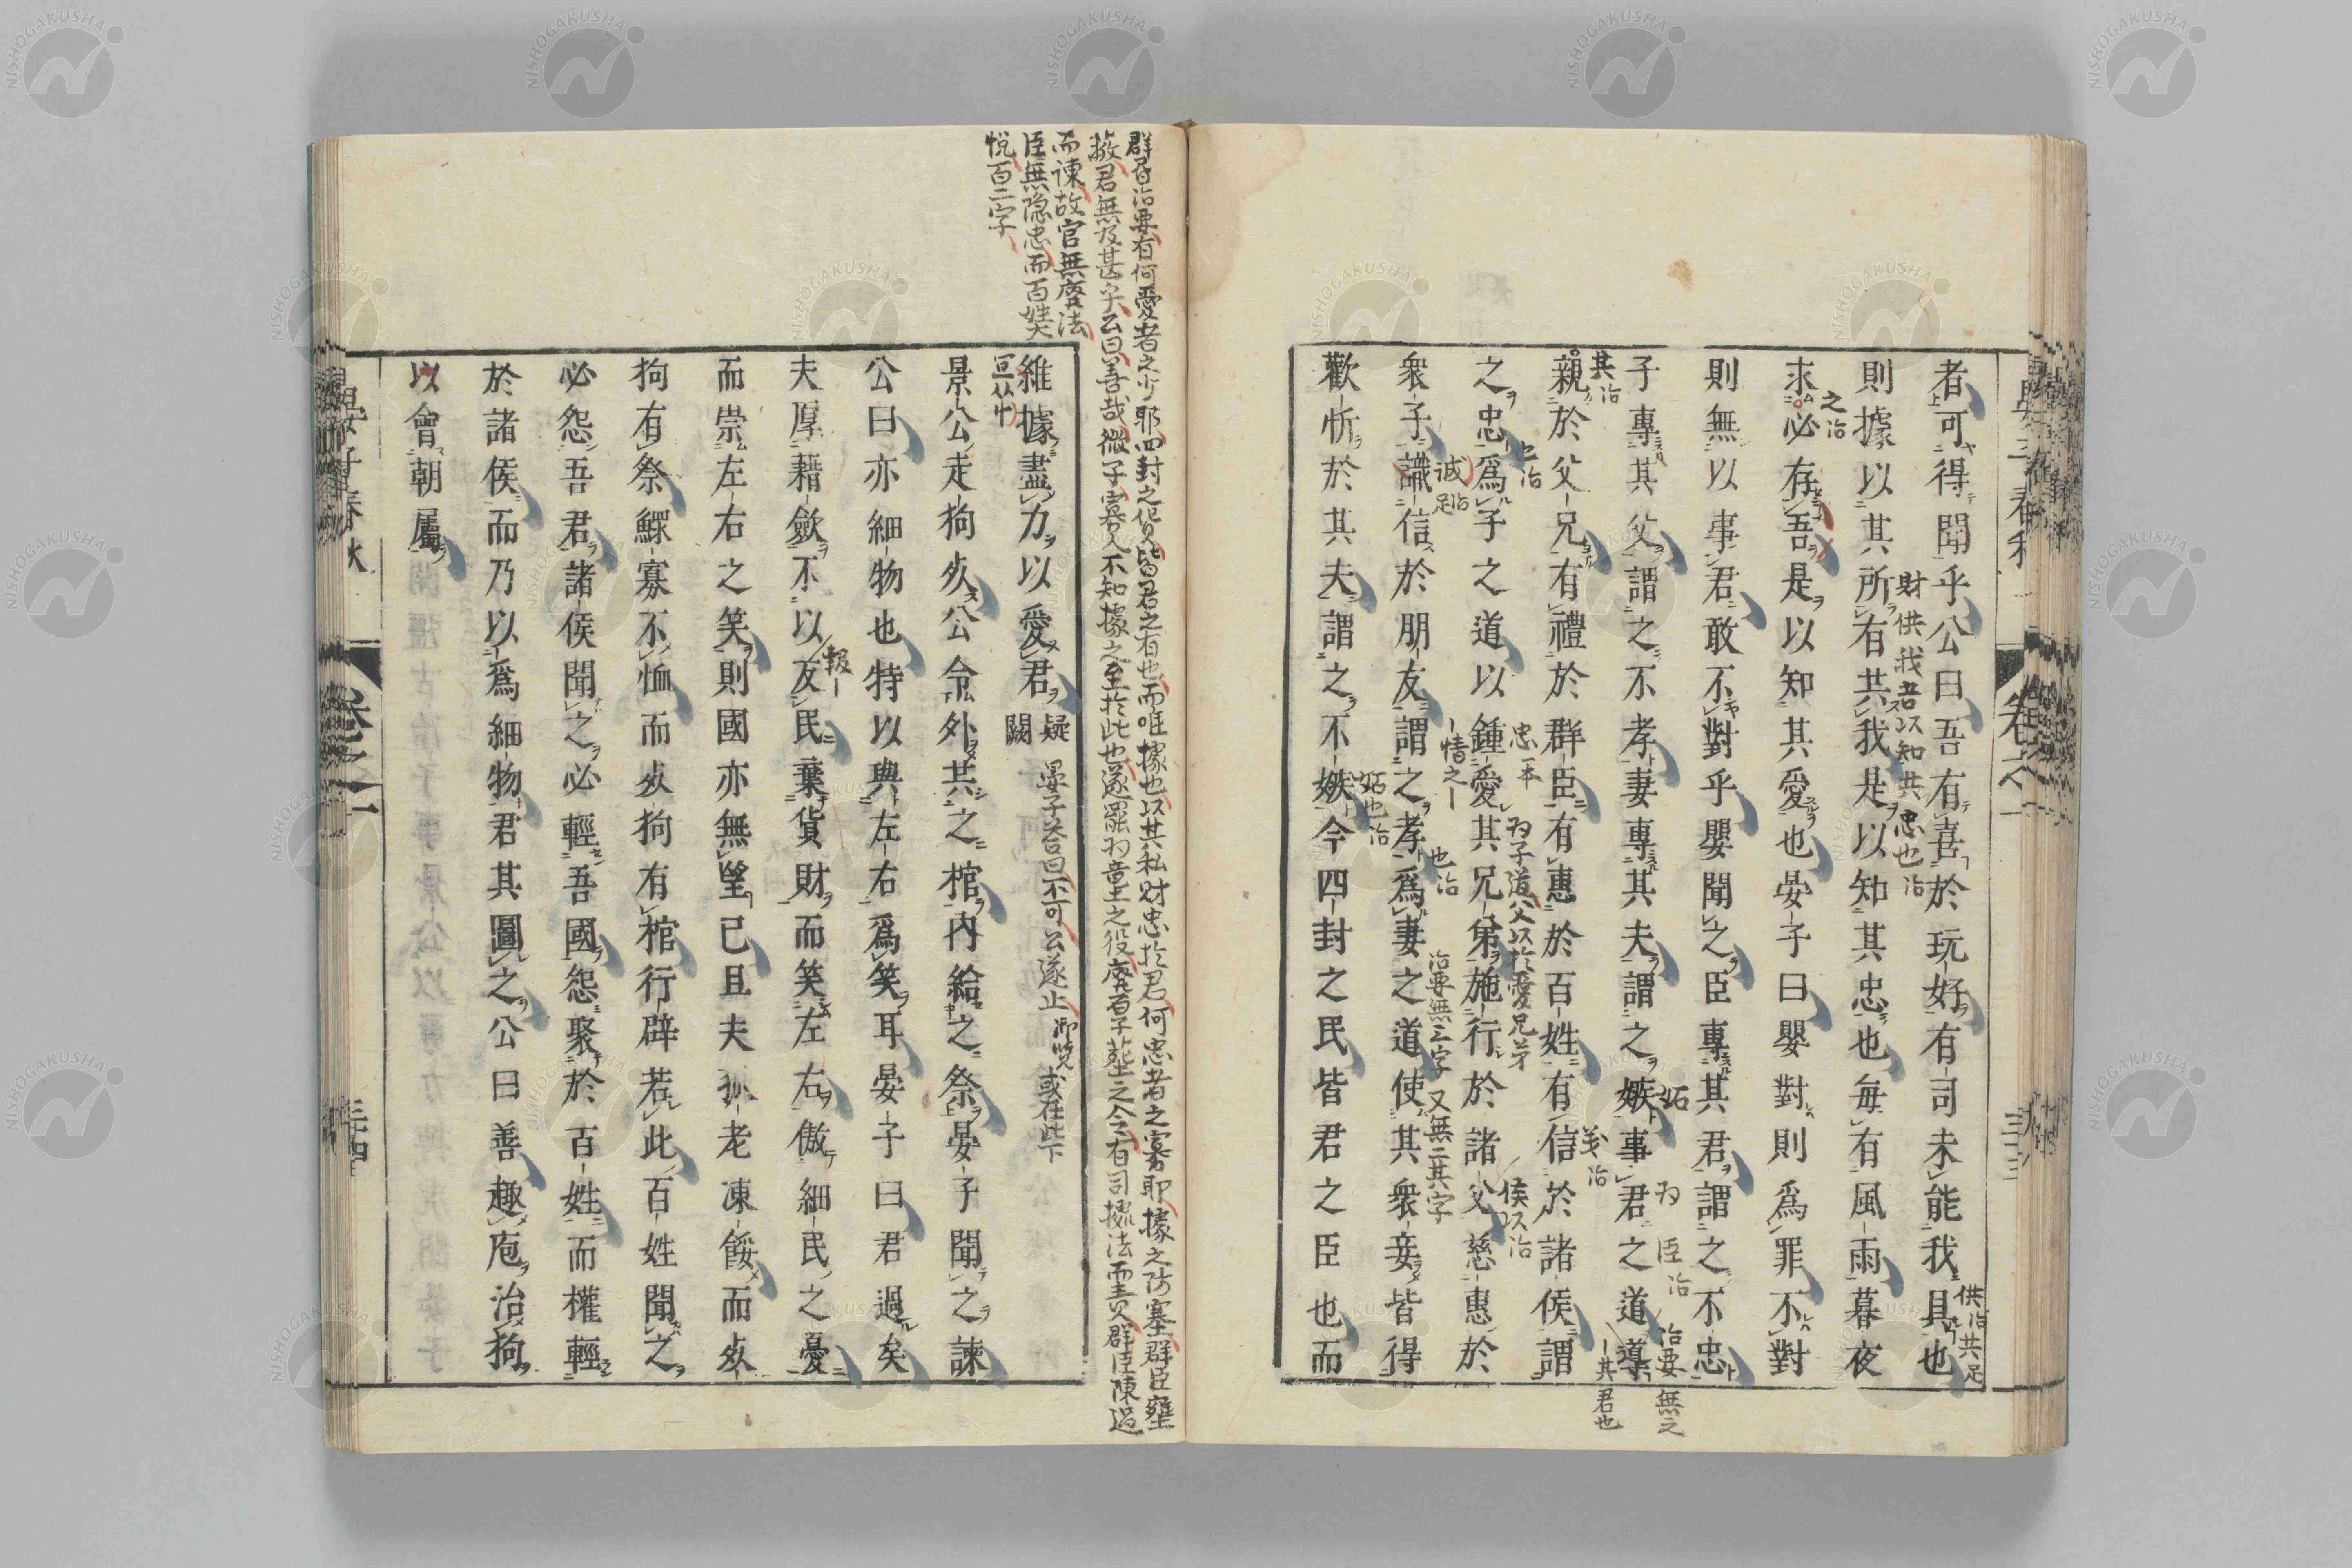 者可得聞乎公曰吾有喜於玩好有司未能我具也
則據以其所有共我是以知其忠也每有風雨暮夜
求必存吾是以知其愛也晏子曰嬰對則爲罪不對
則無以事君敢不對乎嬰聞之臣專其君謂之不忠
子專其父謂之不孝妻專其夫謂之嫉事君之道導
親於父兄有禮於群臣有惠於百姓有信於諸侯謂
之忠爲子之道以鍾愛其兄弟施行於諸父慈惠於
衆子識信於朋友謂之孝爲妻之道使其衆妾皆得
歡忻於其夫謂之不嫉今四封之民皆君之臣也而
供治共足
財供我吾以知其忠也治
之治
妬
爲
臣治
治要無之
其治
義治
其君也
也治
忠一本
爲子道父以於愛兄弟
侯以治
誠治足
惜之
也治
治要無三字又無二其字
妬也治
群君治要有何愛者之少耶四封之貨皆君之有也而唯據也以其私財忠於君何忠者之寡耶據之防塞群臣壅
蔽君無乃甚字云曰善哉微子寡人不知據之至於此也遂罷爲壟之役廢厚葬之令令有司據法而責群臣陳過
而諫故官無廢法
臣無隱忠而百姓大
悅百二字
維據盡力以愛君疑闕晏子答曰不可公遂止御覽或在此下
景公走狗死公令外共之棺内給之祭晏子聞之諫
公曰亦細物也特以與左右爲笑耳晏子曰君過矣
夫厚藉斂不以友民棄貨財而笑左右傲細民之憂
而崇左右之笑則國亦無望已且夫孤老凍餒而死
狗有祭鰥寡不恤而死狗有棺行辟若此百姓聞之
必怨吾君諸侯聞之必輕吾國怨聚於百姓而權輕
於諸侯而乃以爲細物君其圖之公曰善趣庖治狗
以會朝屬
報
晏子春秋
卷之二
三十四